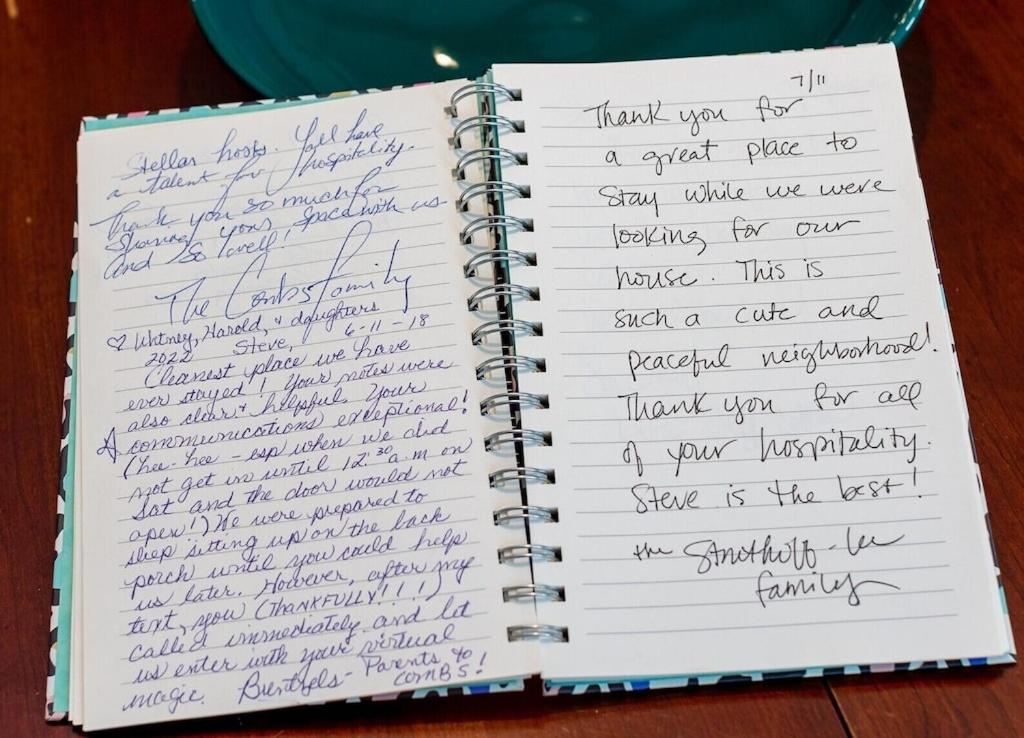 Stellar hosts. Yall have
a talent for hospitality.
Thank you so much for
sharing your space with us
and so well!
The Combs Family
♡ Whitney, Harold, + daughters
2022 Steve, 6-11-18
Cleanest place we have
ever stayed! Your notes were
also clear + helpful. Your
communications exceptional!
(hee-hee - esp when we did
not get in until 12:30 a.m on
Sat and the door would not
open!) We were prepared to
sleep sitting up on the back
porch until you could help
us later. However, after my
text, you (THANKFULLY!!!!)
called immediately and let
us enter with your virtual
magic. Bentzels- Parents to
COMBS!
7/11
Thank you for
a great place to
stay while we were
looking for our
house. This is
such a cute and
peaceful neighborhood!
Thank you for all
of your hospitality.
Steve is the best!
the Struthoff-Lee
family